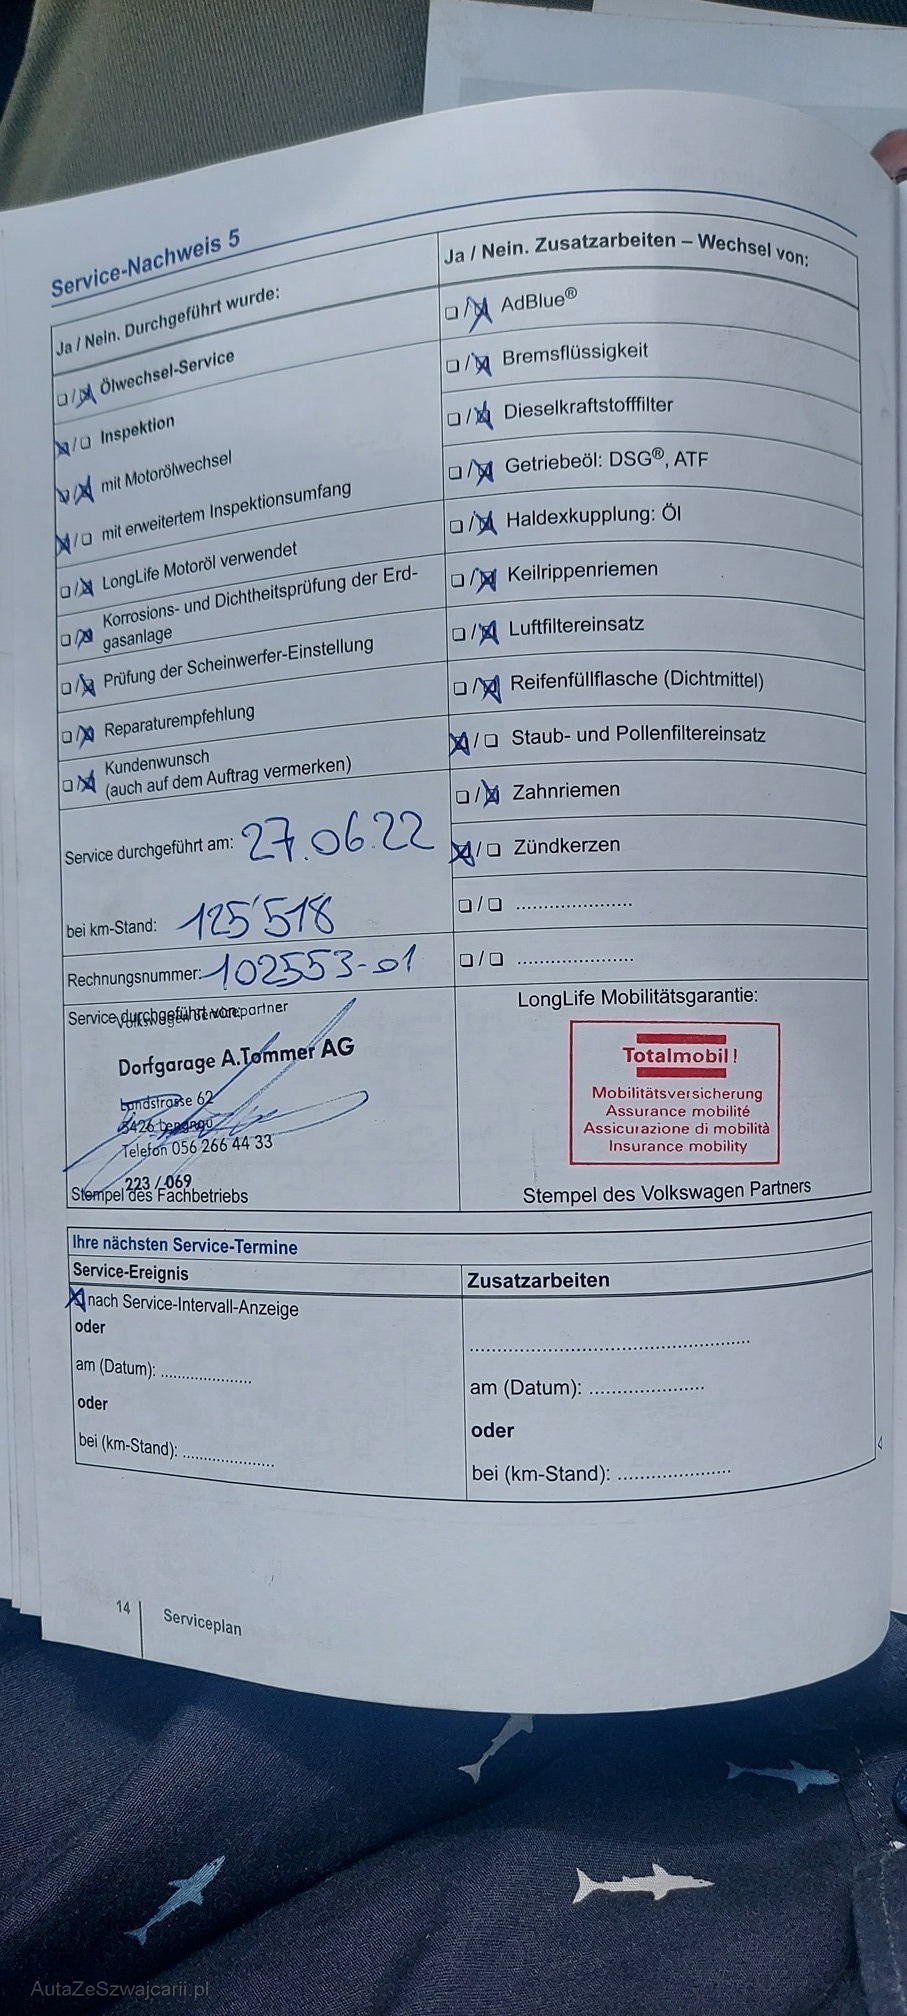 Service-Nachweis 5
Ja / Nein. Durchgeführt wurde:
Ölwechsel-Service
Inspektion
mit Motorölwechsel
mit erweitertem Inspektionsumfang
LongLife Motoröl verwendet
Korrosions- und Dichtheitsprüfung der Erd-
gasanlage
Prüfung der Scheinwerfer-Einstellung
Reparaturempfehlung
Kundenwunsch
(auch auf dem Auftrag vermerken)
Service durchgeführt am: 27.06.22
bei km-Stand: 125'518
Rechnungsnummer: 102553-01
Service durchgeführt von:
Volkswagen Servicepartner
Dorfgarage A.Tommer AG
Landstrasse 62
5426 Lengnau
Telefon 056 266 44 33
223 / 069
Stempel des Fachbetriebs
Ja / Nein. Zusatzarbeiten – Wechsel von:
AdBlue®
Bremsflüssigkeit
Dieselkraftstofffilter
Getriebeöl: DSG®, ATF
Haldexkupplung: Öl
Keilrippenriemen
Luftfiltereinsatz
Reifenfüllflasche (Dichtmittel)
Staub- und Pollenfiltereinsatz
Zahnriemen
Zündkerzen
LongLife Mobilitätsgarantie:
Totalmobil!
Mobilitätsversicherung
Assurance mobilité
Assicurazione di mobilità
Insurance mobility
Stempel des Volkswagen Partners
Ihre nächsten Service-Termine
Service-Ereignis
nach Service-Intervall-Anzeige
oder
am (Datum): ....................
oder
bei (km-Stand): ....................
Zusatzarbeiten
am (Datum): ....................
oder
bei (km-Stand): ....................
14
Serviceplan
AutaZeSzwajcarii.pl